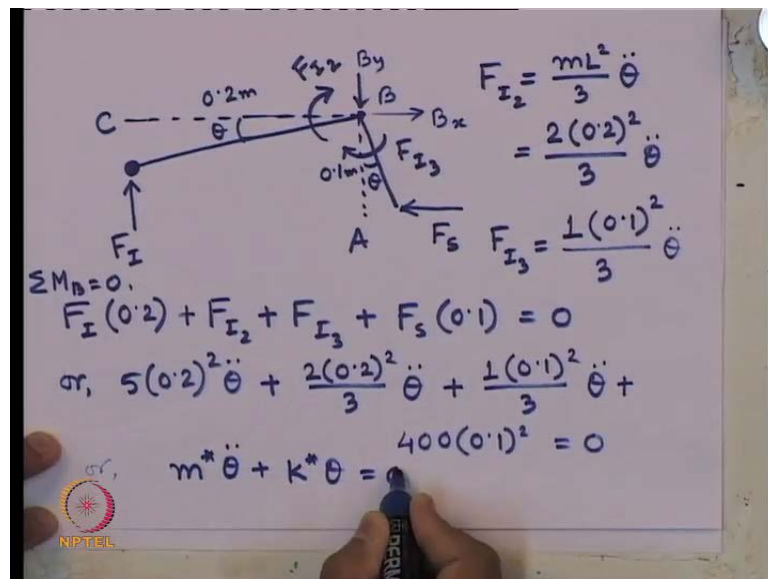 F_{I2} By
0.2m B
C θ Bx
0.1m θ F_{I3}
F_I A F_S
F_{I_2} = \frac{mL^2}{3} \ddot{θ}
= \frac{2(0.2)^2}{3} \ddot{θ}
F_{I_3} = \frac{1(0.1)^2}{3} \ddot{θ}
ΣM_B = 0.
F_I (0.2) + F_{I_2} + F_{I_3} + F_S (0.1) = 0
or, 5(0.2)^2 \ddot{θ} + \frac{2(0.2)^2}{3} \ddot{θ} + \frac{1(0.1)^2}{3} \ddot{θ} +
400(0.1)^2 = 0
or, m^* \ddot{θ} + k^* θ =
NPTEL